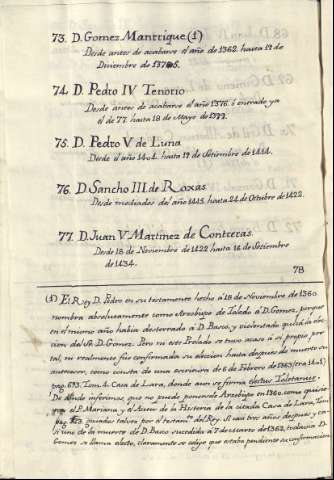 73. D. Gomez Manrrique (1)
Desde antes de acabarse el año de 1362. hasta 19 de
Diciembre de 1375.
74. D. Pedro IV Tenorio
Desde antes de acabarse el año 1376. ó entrado ya
el de 77. hasta 18 de Mayo de 1399.
75. D. Pedro V de Luna
Desde el año 1404. hasta 17 de Setiembre de 1414.
76. D Sancho III de Roxas.
Desde mediados del año 1415. hasta 24 de Octubre de 1422.
77. D. Juan V Martinez de Contreras.
Desde 18 de Noviembre de 1422 hasta 16 de Setiembre
de 1434.
78
(1) El Rey D. Pedro en su testamento hecho á 18 de Noviembre de 1360
nombra absolutamente como Arzobispo de Toledo á D. Gomez, porque
en el mismo año habia desterrado á D. Basco, y violentado quizá la elec-
cion del Sr. D. Gomez. Pero ni este Prelado se tuvo acaso á si propio por
tal, ni realmente fué confirmada su eleccion hasta despues de muerto su
antecesor, como consta de una escritura de 6 de Febrero de 1363 (era 1401)
pag. 693. Tom. 4. Casa de Lara, donde aun se firma electus Toletanus.
De donde inferimos, que no puede ponersele Arzobispo en 1360. como
el P. Mariana, y el Autor de la Historia de la citada Casa de Lara, Tom.
pag. 523. guiados talvez por el testam.to del Rey. Si casi tres años despues, y ca-
si uno de la muerte de D. Basco sucedida á 7 de Marzo de 1362, todavia D.
Gomez se llama electo, claramente se colige que estaba pendiente su confirmacion